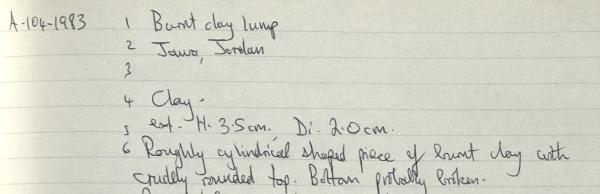 A.104-1983 1 Burnt clay lump
2 Jawa, Jordan
3
4 Clay.
5 ext. H. 3.5cm, Di. 2.0cm.
6 Roughly cylindrical shaped piece of burnt clay with
crudely rounded top. Bottom probably broken.